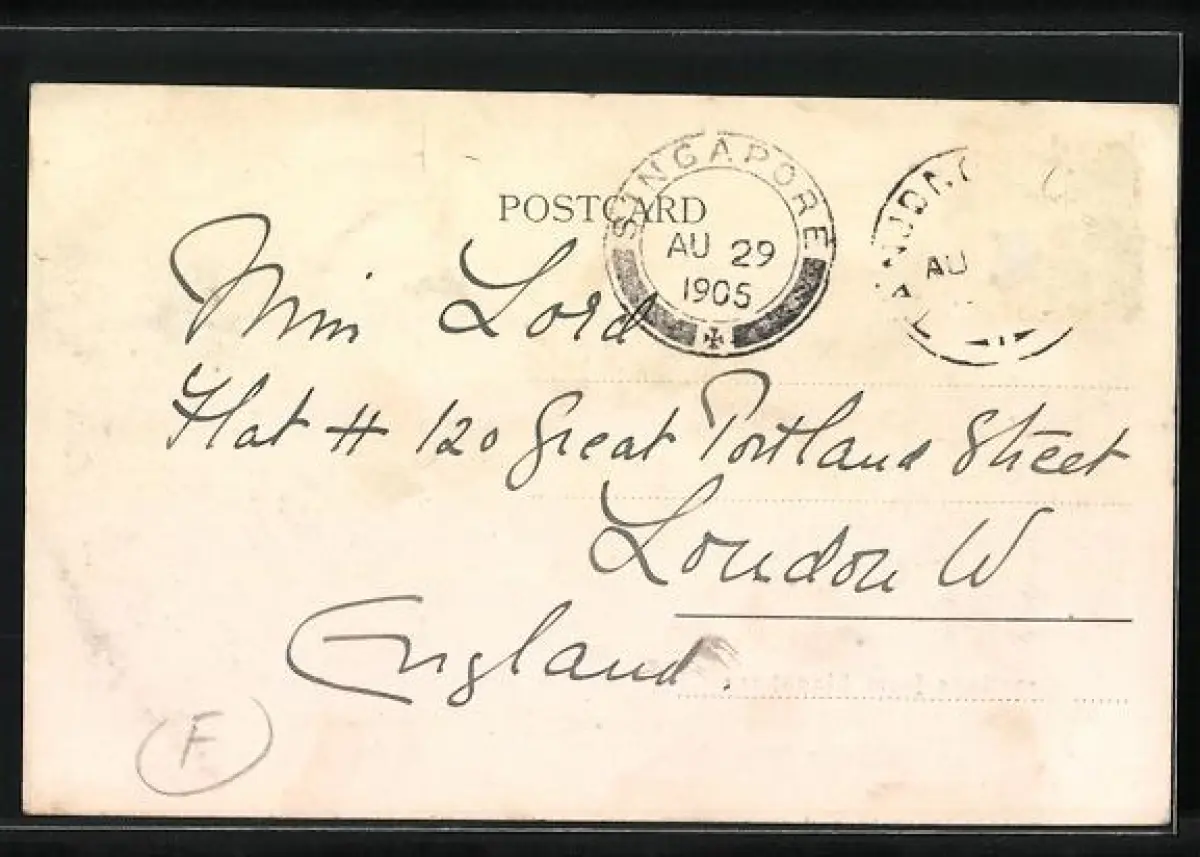 POSTCARD
SINGAPORE
AU 29
1905
AU
Miss Lord
Flat H 120 Great Portland Street
London W
England.
F